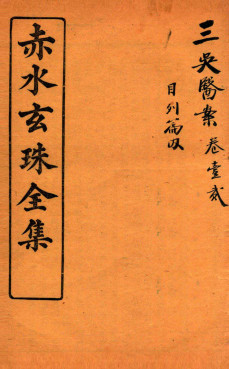 三吳醫案 卷壹貳
目列篇
赤水玄珠全集